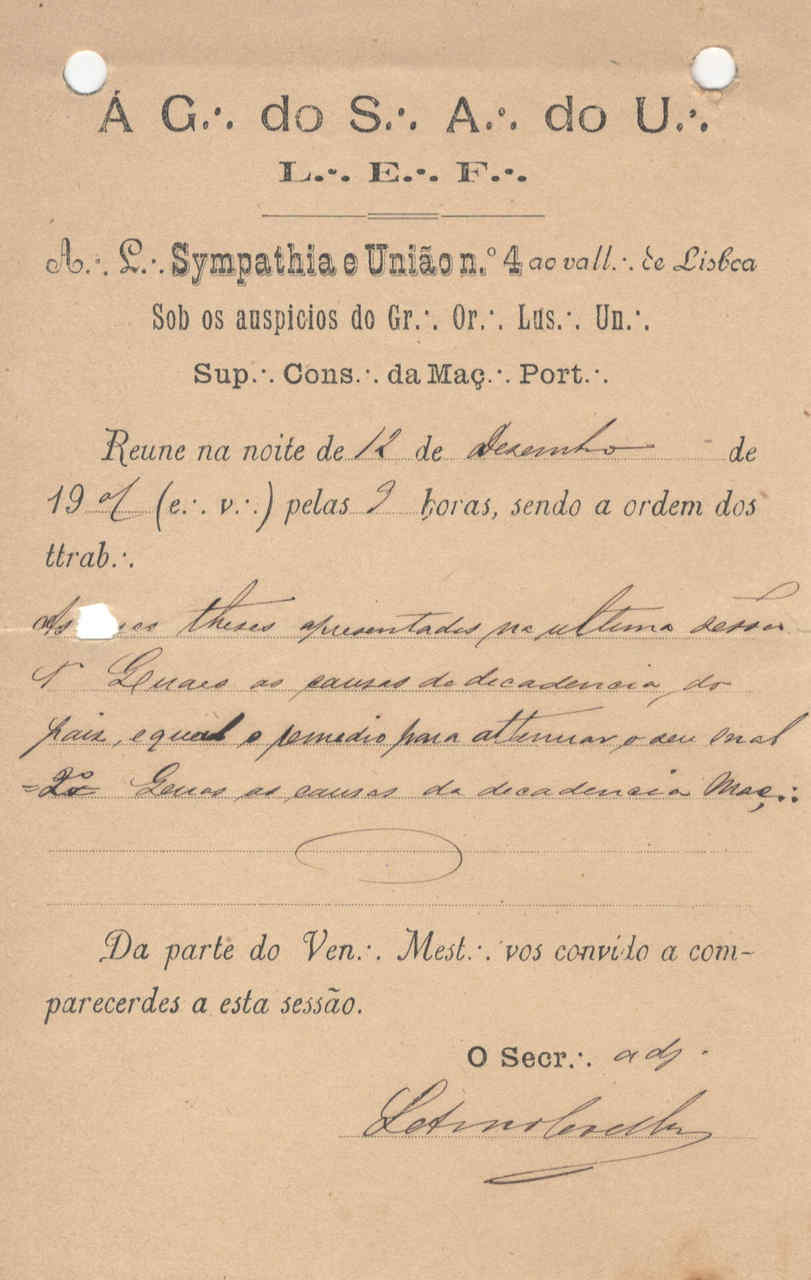 Á G.·. do S.·. A.·. do U.·.
L.·. E.·. F.·.
A.·. L.·. Sympathia e União n.º 4 ao vall.·. de Lisboa
Sob os auspicios do Gr.·. Or.·. Lus.·. Un.·.
Sup.·. Cons.·. da Maç.·. Port.·.
Reune na noite de 12 de Dezembro de
19 07 (e.·. v.·.) pelas 9 horas, sendo a ordem dos
ttrab.·.
As theses apresentadas na ultima sessão
1ª Quaes as causas da decadencia do
paiz, e qual o remedio para attenuar o seu mal
=2º Quaes as causas da decadencia Maç.·.
Da parte do Ven.·. Mest.·. vos convido a com-
parecerdes a esta sessão.
O Secr.·. adj.